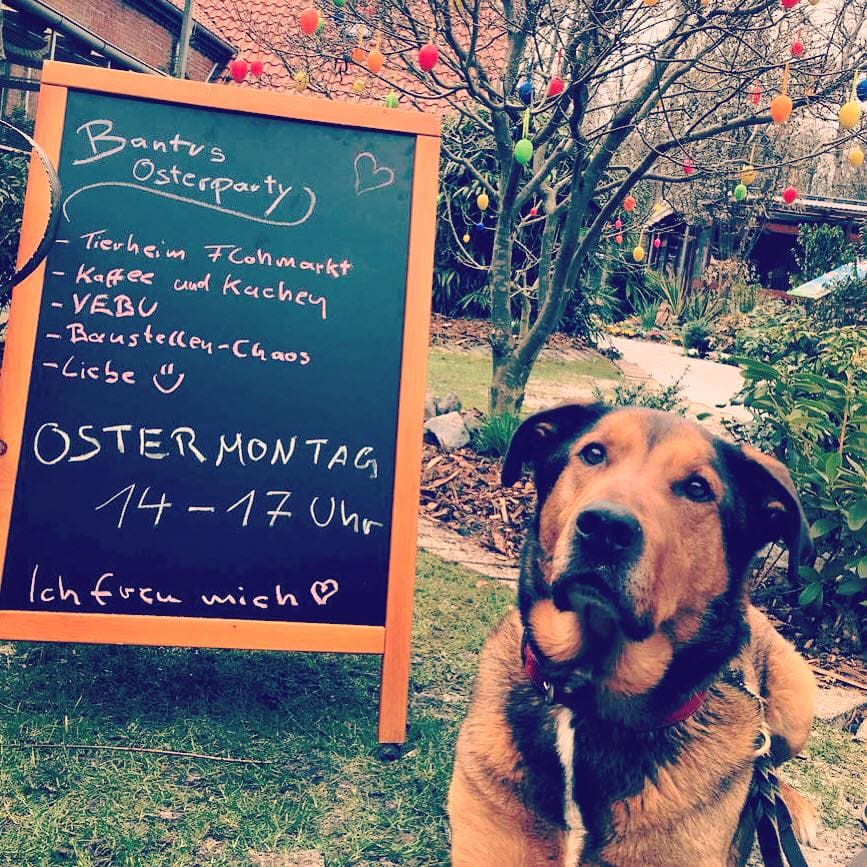 Bantus
Osterparty
- Tierheim Flohmarkt
- Kaffee und Kuchen
- VEBU
- Baustellen-Chaos
- Liebe
OSTERMONTAG
14-17 Uhr
Ich freu mich